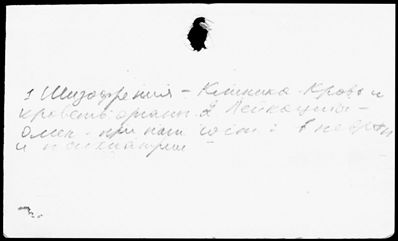 1 Шизофрения - Клиника. Кровь и
кроветв. органы. 2 Лейкоциты -
при пат. сост. : в невроп
и психиатрии